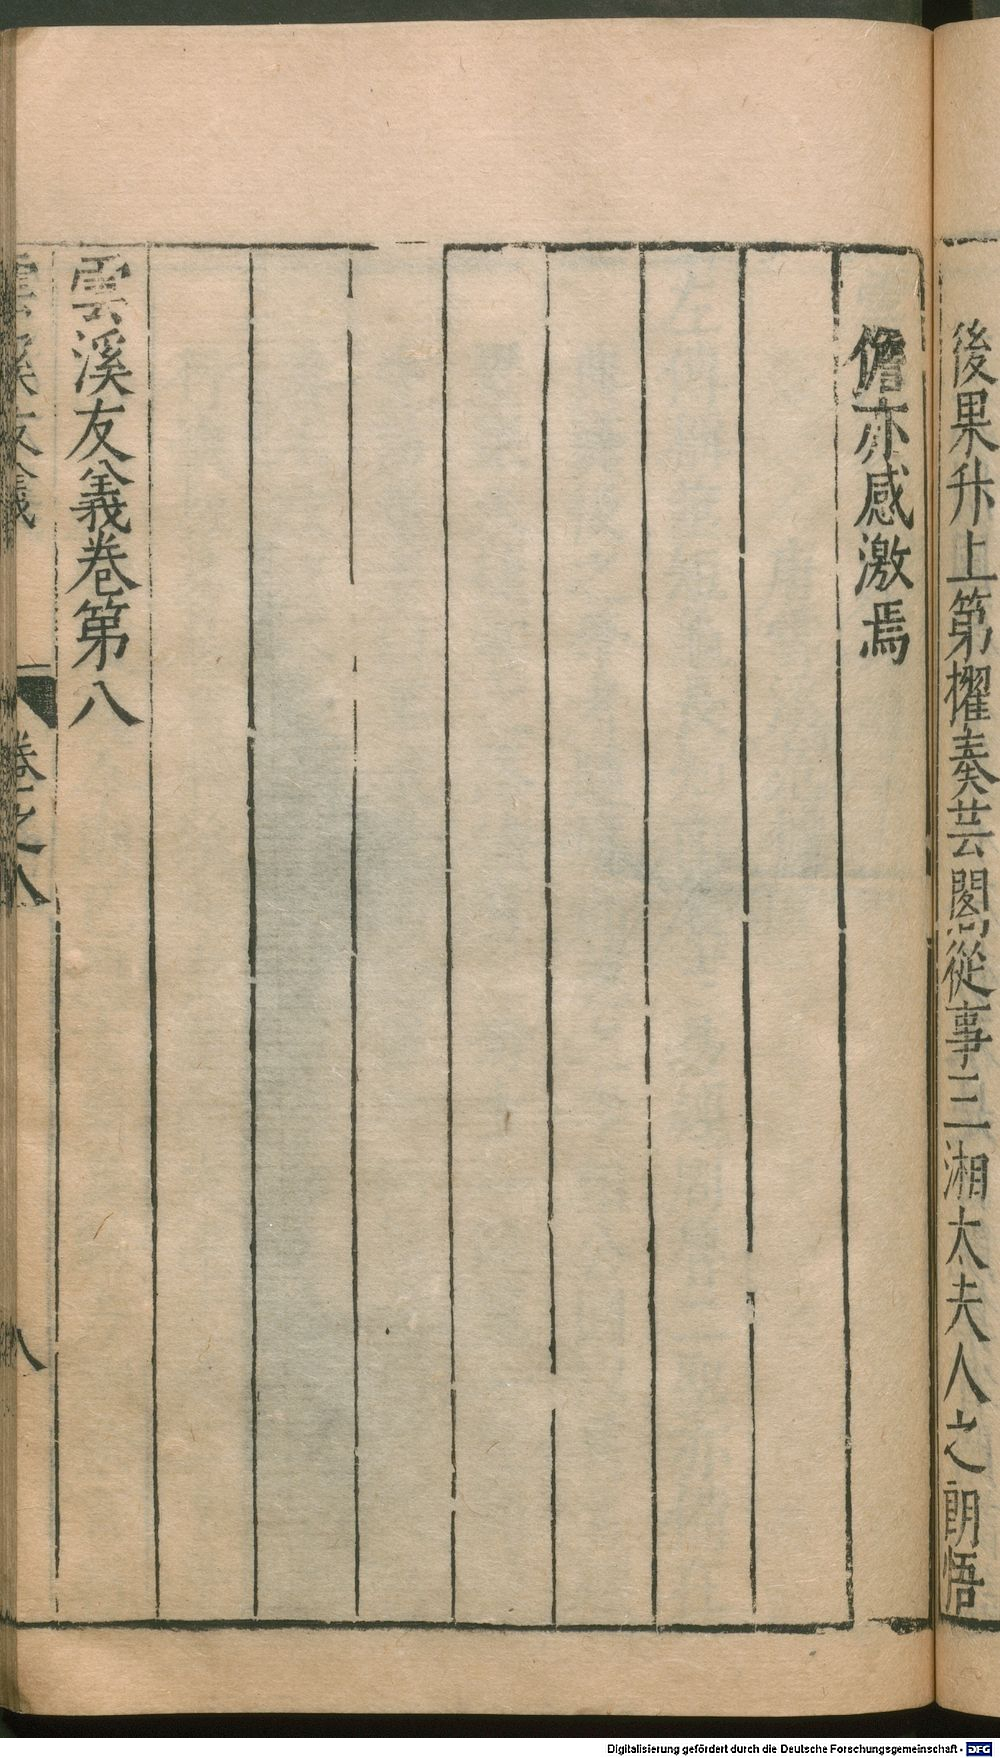 後果升上第擢奏芸閣從事三湘太夫人之朗悟
儋亦感激焉
雲溪友議卷第八
雲溪友議 卷之八 八
Digitalisierung gefördert durch die Deutsche Forschungsgemeinschaft - DFG